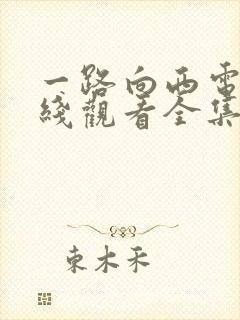 一路向西電
綫觀看全集
東木禾